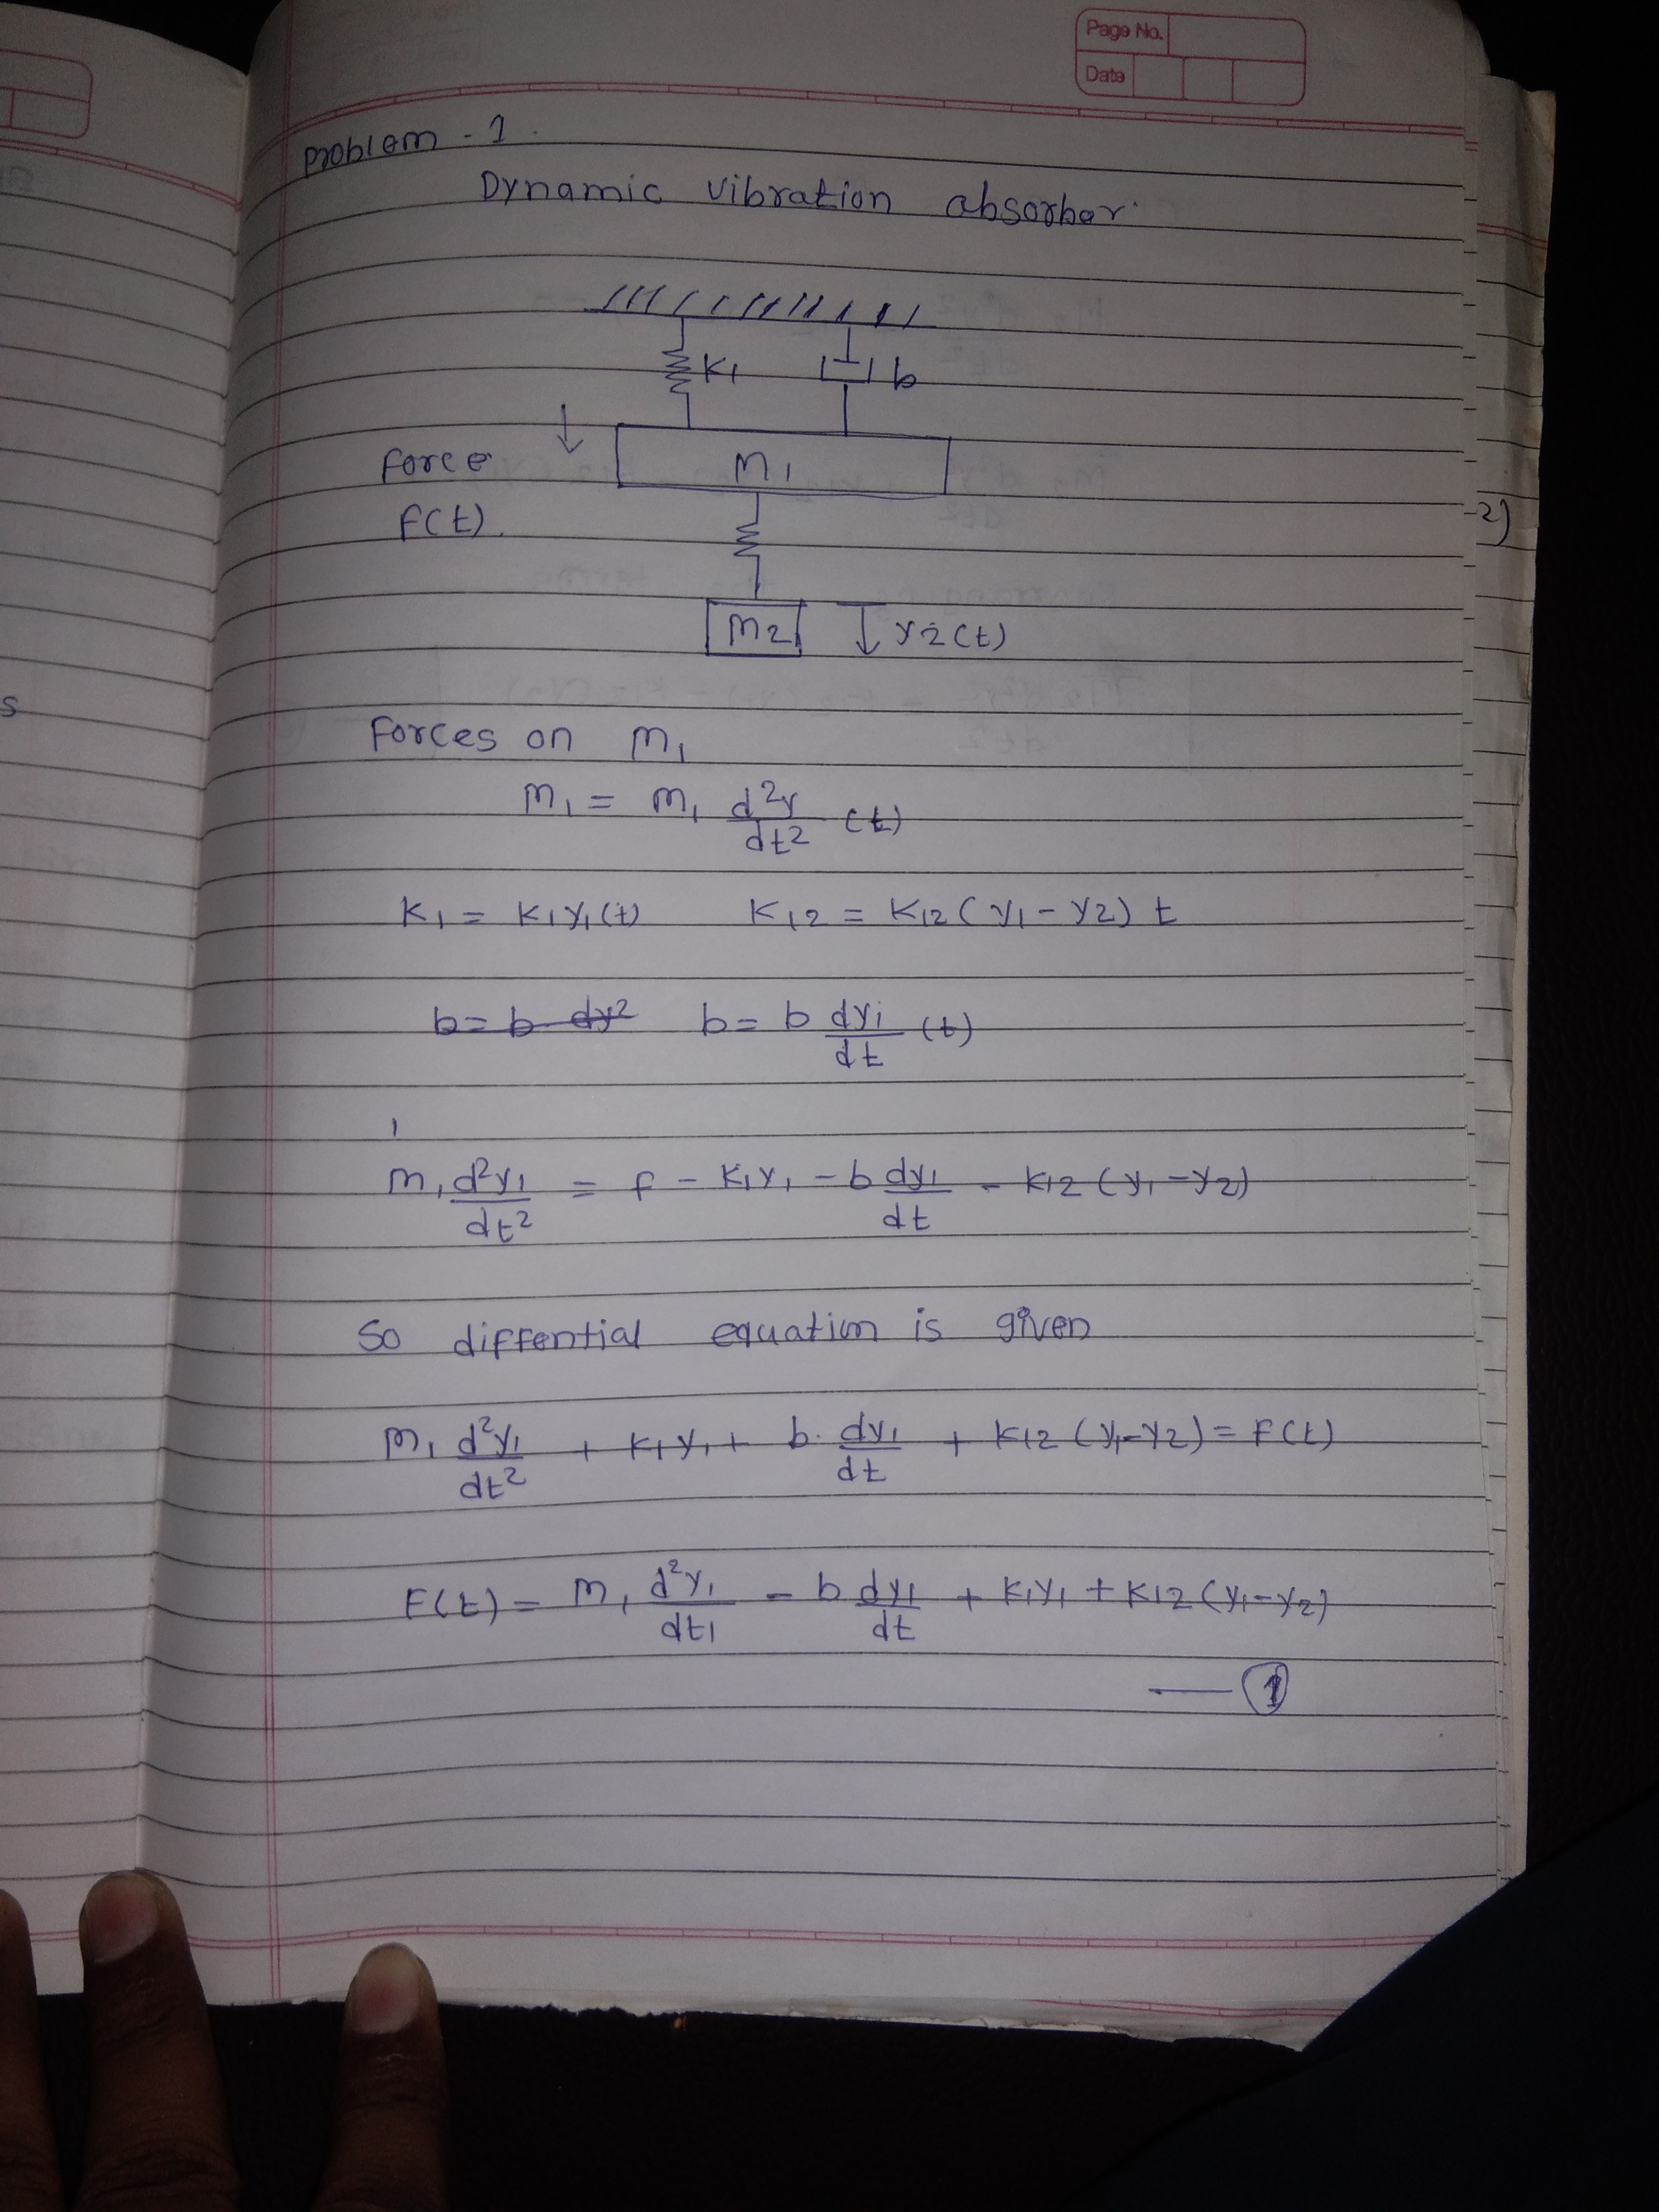 Page No.
Date
Problem - 1.
Dynamic vibration absorber.
K1 b
Force
F(t).
M1
M2 y2(t)
-2)
s
Forces on M1
M1 = M1 d²y/dt² (t)
K1 = K1y1(t) K12 = K12 (y1 - y2) t
b = b dy2 b = b dy1/dt (t)
M1 d²y1/dt² = F - K1y1 - b dy1/dt - K12 (y1 - y2)
So diffential equation is given
M1 d²y1/dt² + K1y1 + b. dy1/dt + K12 (y1 - y2) = F(t)
F(t) = M1 d²y1/dt1 - b dy1/dt + K1y1 + K12 (y1 - y2)
— 1